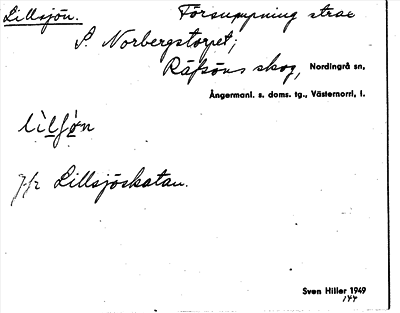 Lillsjön. Försumpning strax
S. Norbergstorpet;
Räfsöns skog, Nordingrå sn,
Ångermanl. s. doms. tg., Västernorrl. l.
lìlʃø̀n
7/2 Lillsjöskatan.
Sven Hiller 1949
144